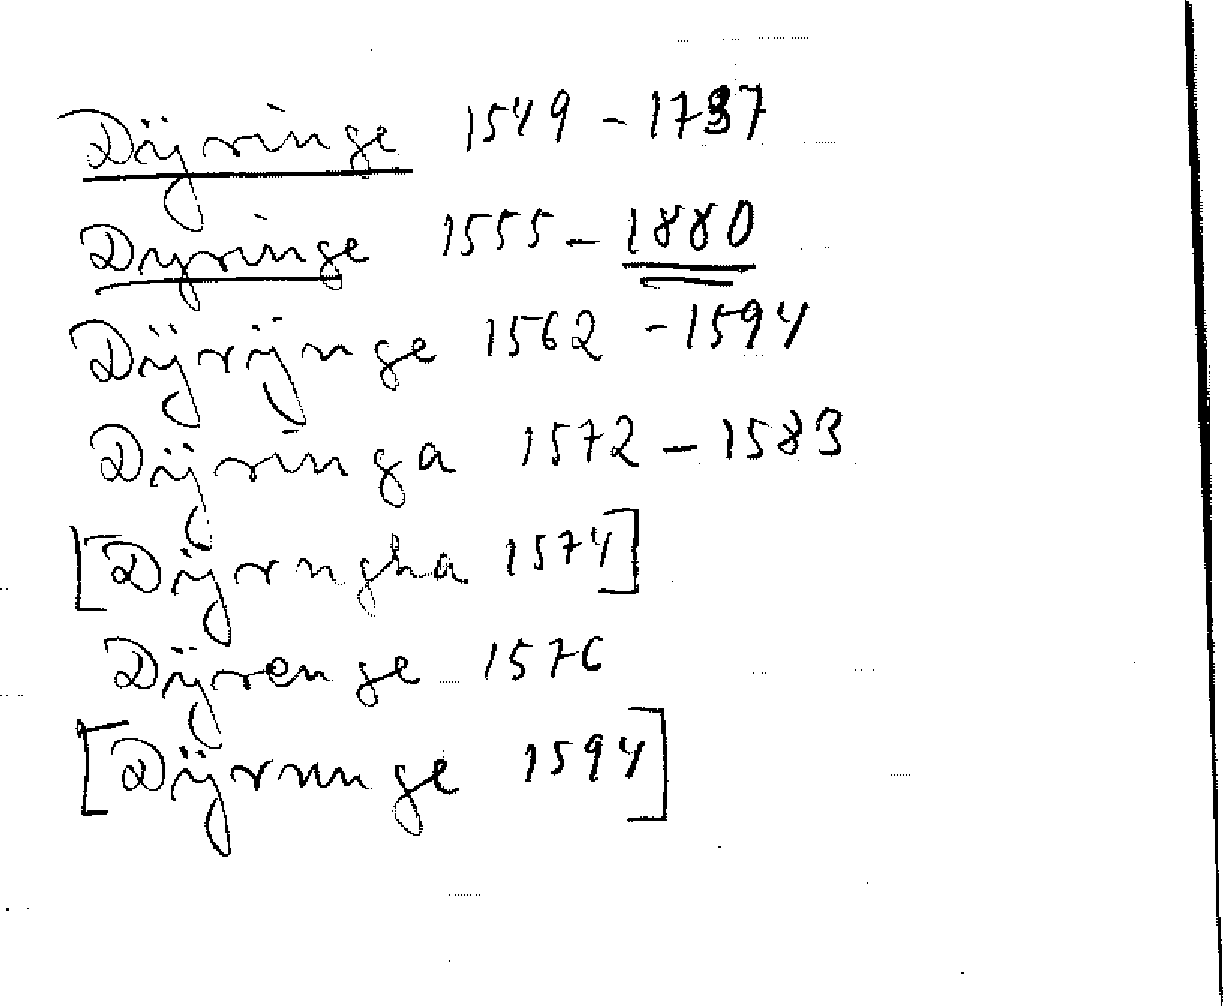 Dijringe 1549 - 1737
Dyringe 1555 - 1880
Dijrijnge 1562 - 1594
Dijringa 1572 - 1583
[Dijrngha 1574]
Dijrenge 1576
[Dijrunge 1594]